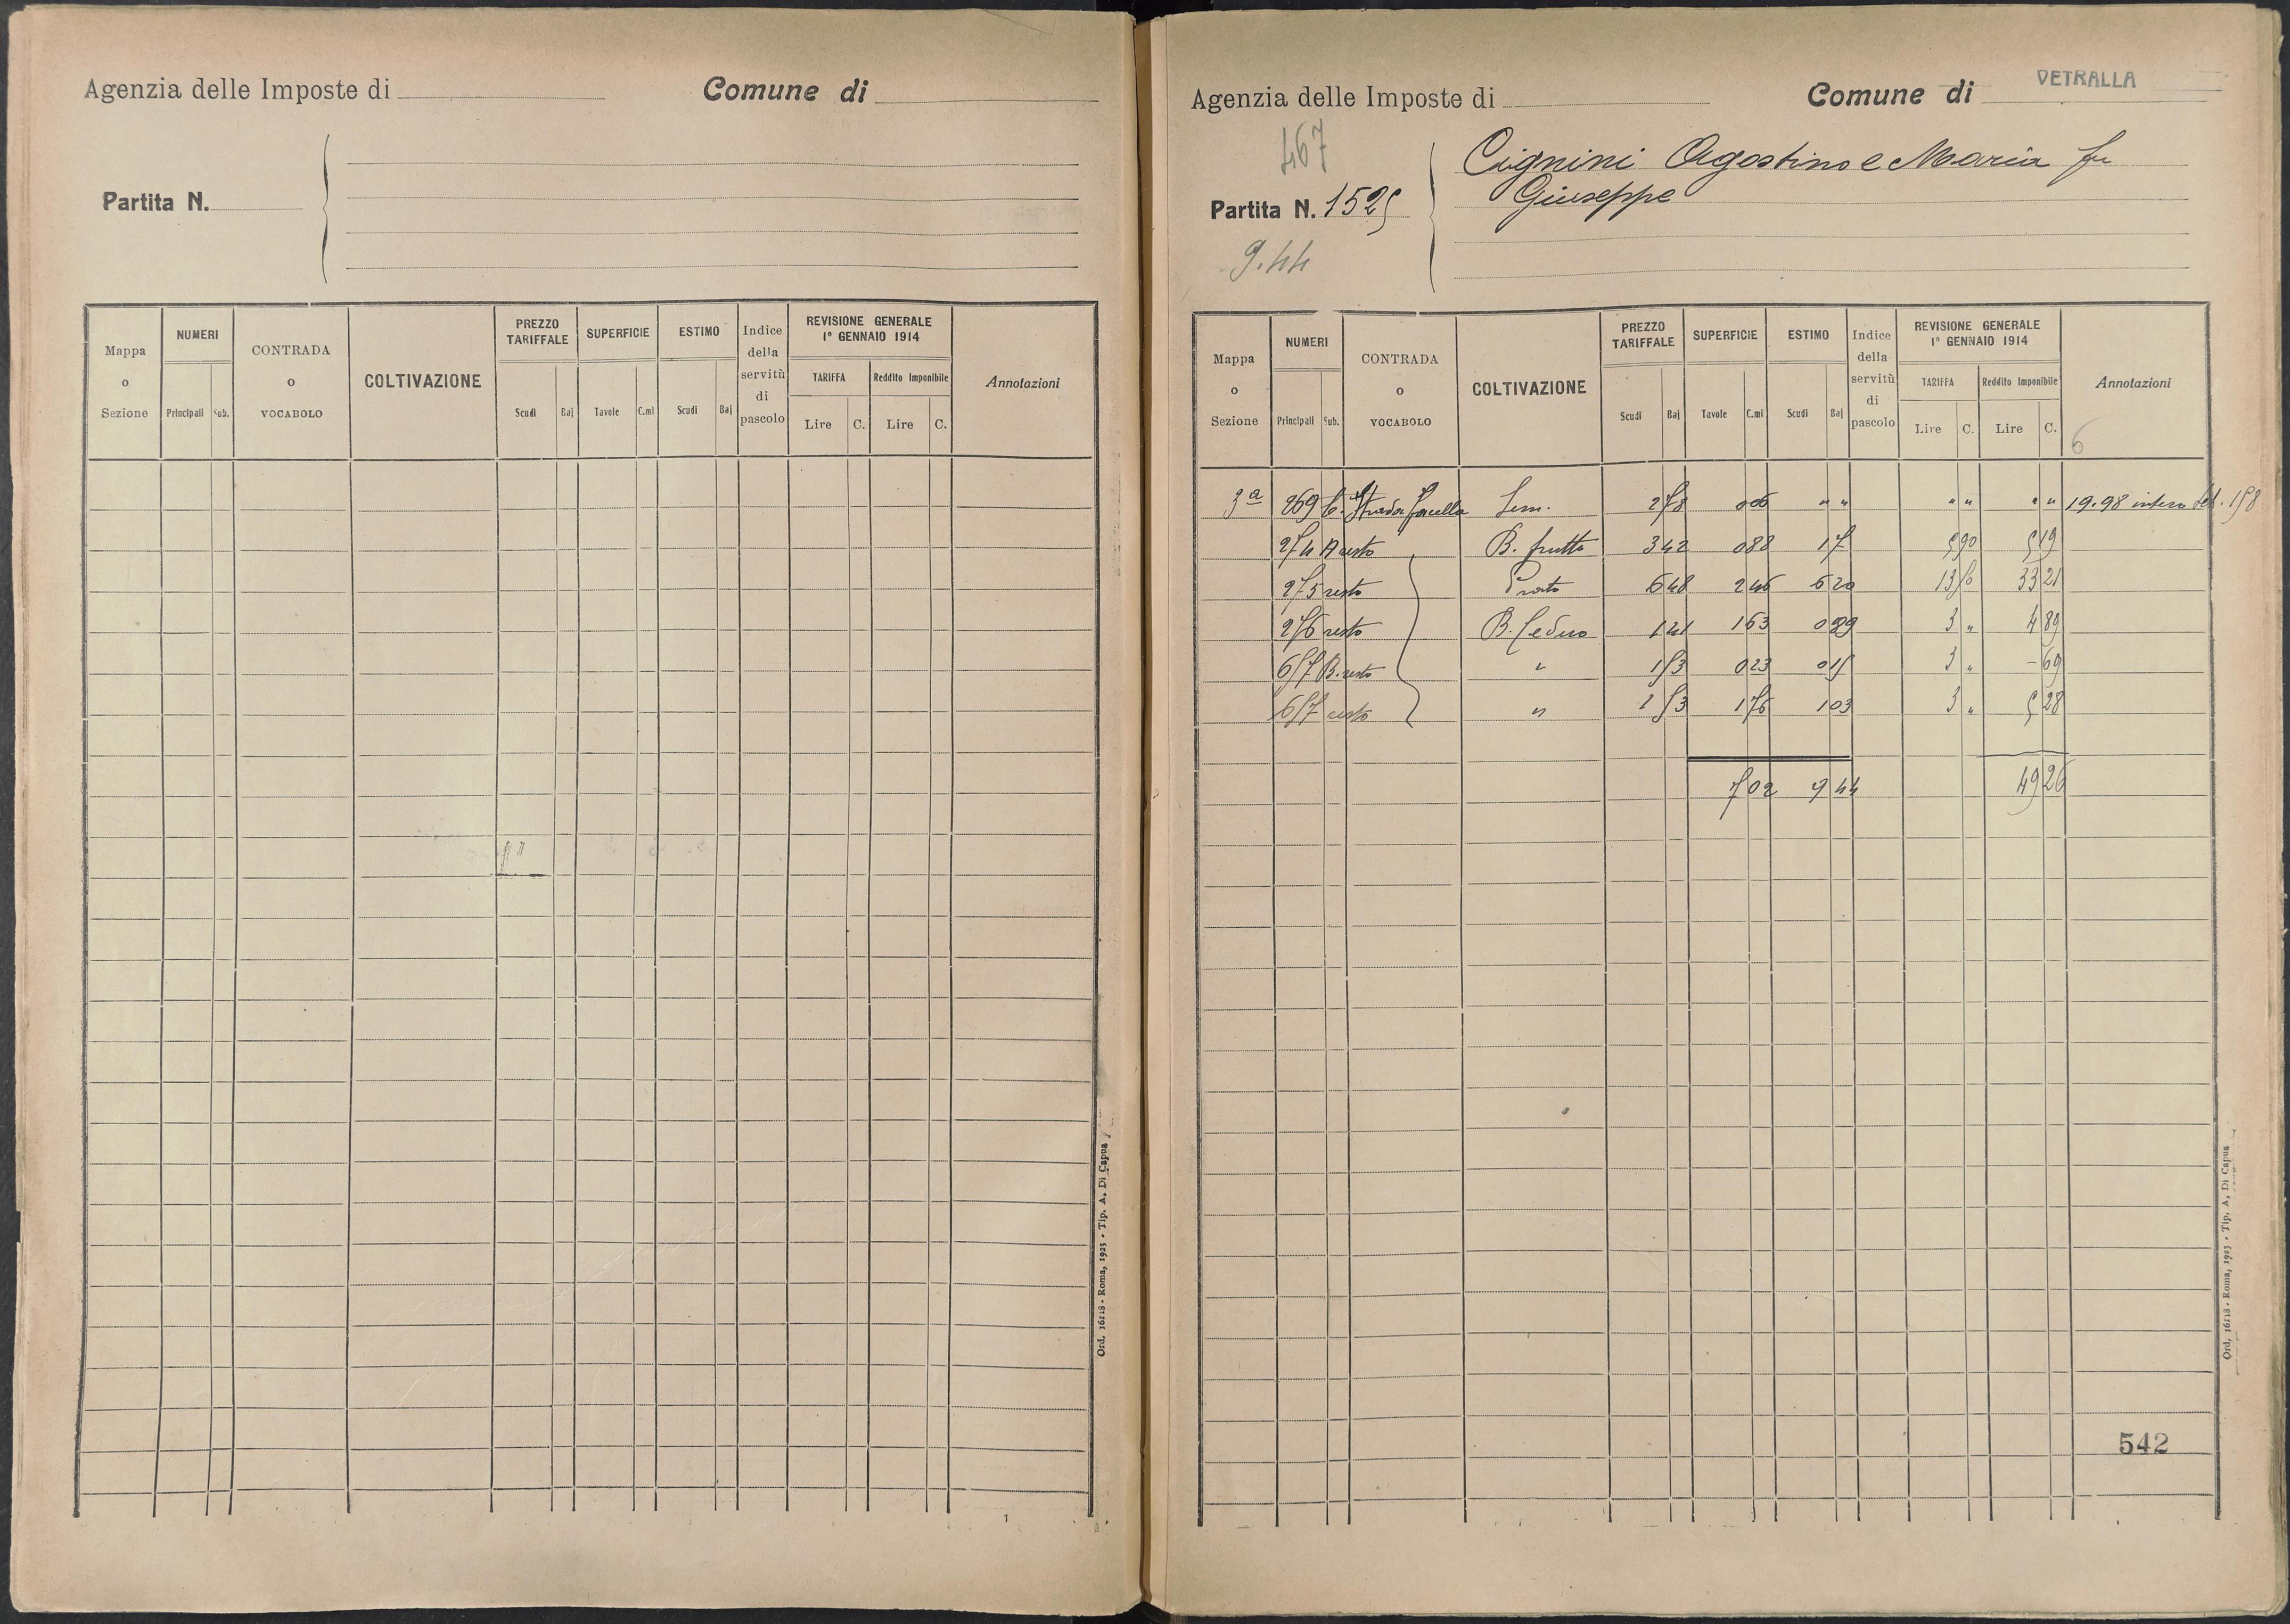 Agenzia delle Imposte di
Comune di
Partita N.
Mappa o Sezione
NUMERI
Principali Sub.
CONTRADA o VOCABOLO
COLTIVAZIONE
PREZZO TARIFFALE
Scudi Baj
SUPERFICIE
Tavole C.mi
ESTIMO
Scudi Baj
Indice della servitù di pascolo
REVISIONE GENERALE
1° GENNAIO 1914
TARIFFA
Lire C.
Reddito Imponibile
Lire C.
Annotazioni
Ord. 16118 - Roma, 1923 - Tip. A. Di Capua
Agenzia delle Imposte di
Comune di VETRALLA
467
Cignini Agostino e Maria fu
Giuseppe
Partita N. 1525
9.44
Mappa o Sezione
NUMERI
Principali Sub.
CONTRADA o VOCABOLO
COLTIVAZIONE
PREZZO TARIFFALE
Scudi Baj
SUPERFICIE
Tavole C.mi
ESTIMO
Scudi Baj
Indice della servitù di pascolo
REVISIONE GENERALE
1° GENNAIO 1914
TARIFFA
Lire C.
Reddito Imponibile
Lire C.
Annotazioni
6
3ª 269 Strada Sem. 2 78 0 06 " " " " " " 19.98 intero
274 A resto B. frutto 3 42 0 88 5 90 5 19
275 resto Prato 2 46 6 20 13 50 33 21
276 resto B. Ceduo 1 63 0 89 3 " 4 89
657 B. resto " 1 53 0 23 0 15 3 " - 69
657 resto " 1 53 1 76 1 03 3 " 5 28
7 02 9 44 49 26
542
Ord. 16118 - Roma, 1923 - Tip. A. Di Capua